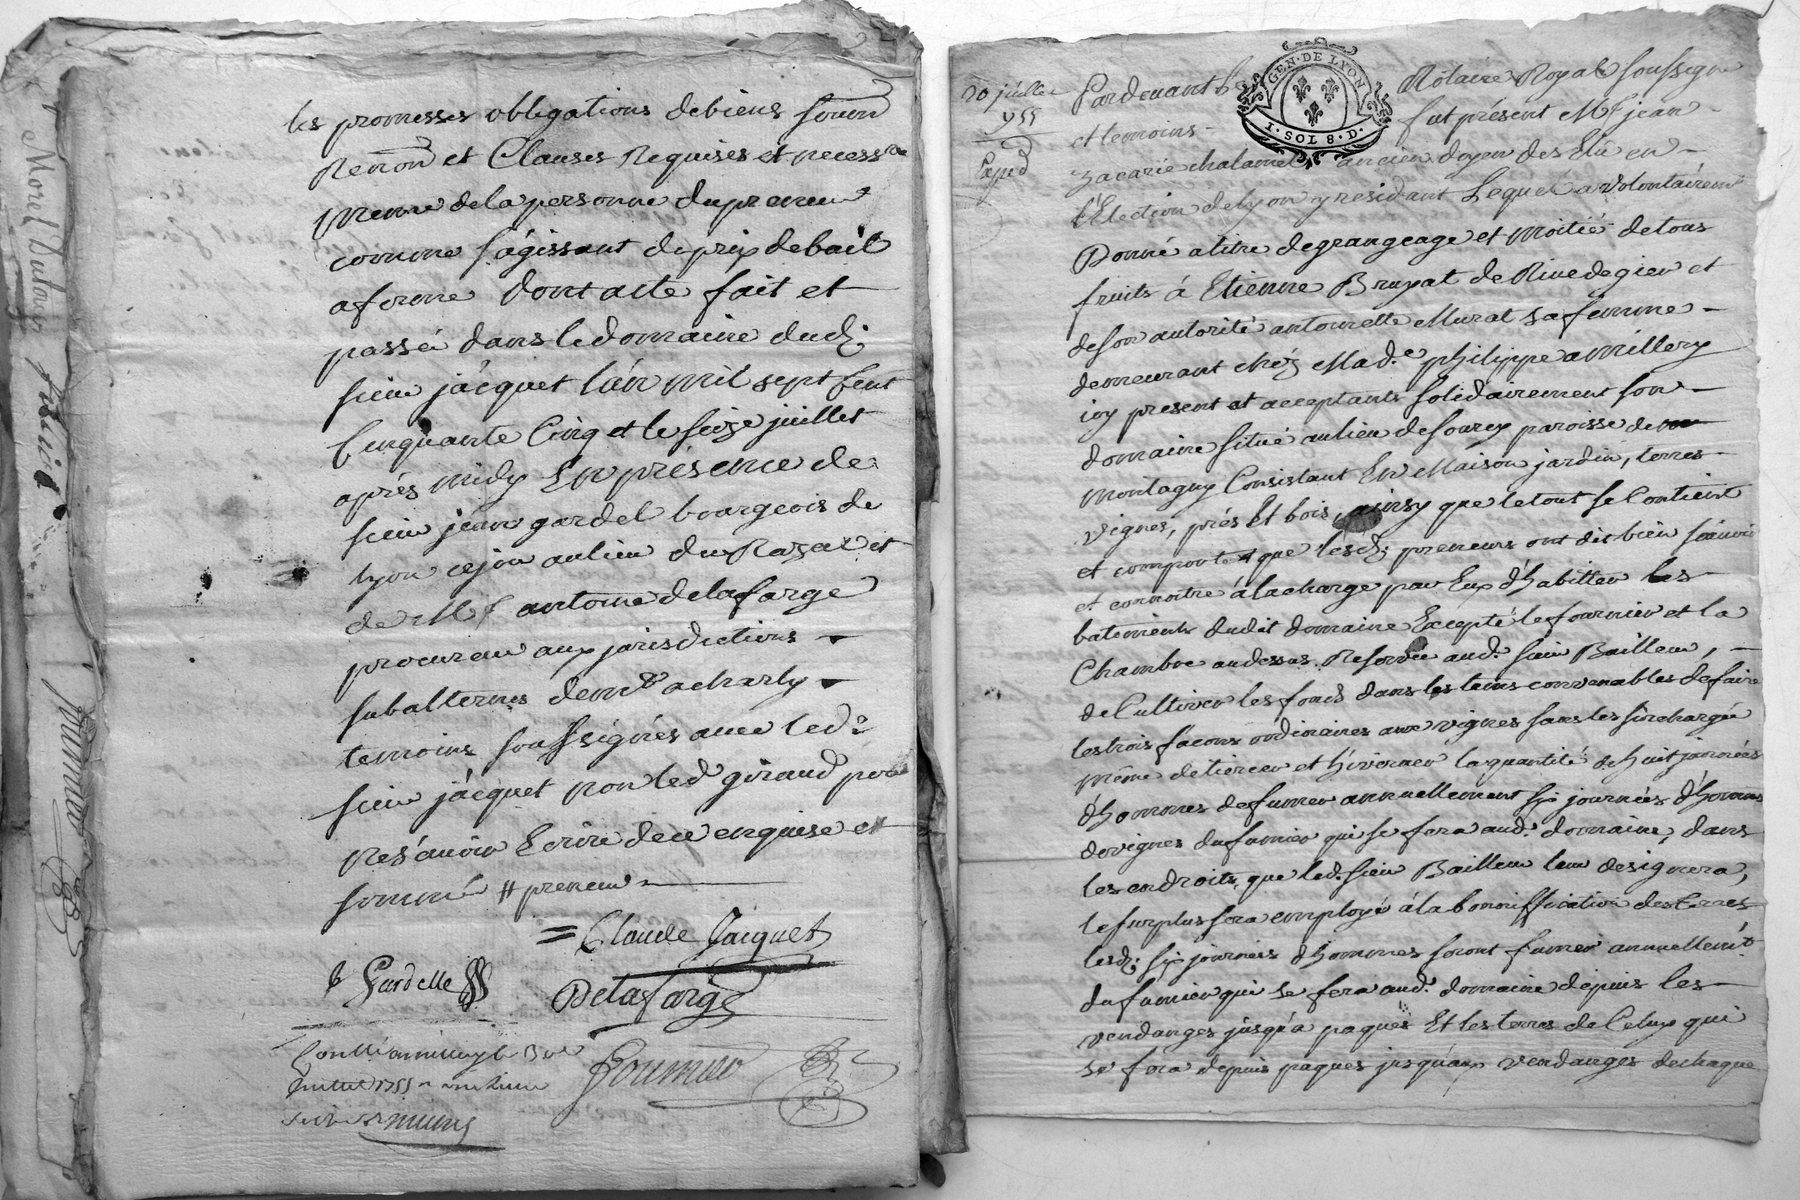 les promesses obligations debiens soum
Renon et Clauses Requises et necess
mesme dela personne dupreneur
comme s'agissant deprix debail
aferme Dont acte fait et
passé dans ledomaine dud:
sieur jácquet l'an mil sept Cent
Cinquante Cinq et le seize juillet
aprés midy En présence de
sieur jean gardel bourgeois de
lyon
de Mr antoine delafarge
procureur aux jurisdictions
subalternes demt acharly
temoins soussignés avec led:
sieur jácquet non led giraud pour
ne sçavoir Ecrire dece enquise et
sommé # preneur
= Claude Jacquet
Gardelle
Delafarge
Controllé
juillet 1755
Fournier
30 juillet
755
Exped
GEN·DE LYON
I·SOL 8·D·
Pardevant Le Notaire Royal soussigné
et temoins fut présent Mr jean
Zacarie chalamel ancien doyen des Elû en
l'Election delyon y residant Lequel a volontairemt
Donné atitre degrangeage et moitié detous
fruits á Etienne Brupat de Rivedegier et
deson autorité antoinette Murat sa femme
demeurant chéz Made philippe amillery
icy present et acceptants solidairement son
domaine situé aulieu desourcy paroisse de
Montagny Consistant En Maison jardin, terres
vignes, prés Et bois, ainsy que letout se Contient
et comporte et que lesd: preneurs ont dit bien sçavoir
et connoitre á lacharge par Eux d'habitter les
batements dudit domaine Excepté lefournier et la
Chambre audessus Reservée aud: sieur Bailleur,
de Cultiver lesfonds dans les tems convenables defaire
lestrois façons ordinaires aux vignes sans les surchargée
même detiercer et hiverner laquantité dehuit journées
d'hommes defumer annuellement six journées d'hommes
devignes dufumier qui se fera aud: domaine, dans
les endroits, que led: sieur Bailleur leur designera,
lesurplus sera employé á la bonniffication desterres
lesd: six journées d'hommes seront fumés annuellemt
dufumier qui se fera aud: domaine depuis les
vendanges jusqu'a paques Et les terres de Celuy qui
se fera depuis paques jusqu'aux vendanges dechaque